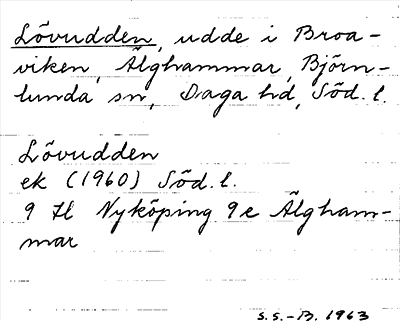 Lövudden, udde i Broa-
viken, Älghammar, Björn-
lunda sn, Daga hd, Söd. l.
Lövudden
ek (1960) Söd. l.
9 H Nyköping 9e Älgham-
mar
S.S.-B. 1963